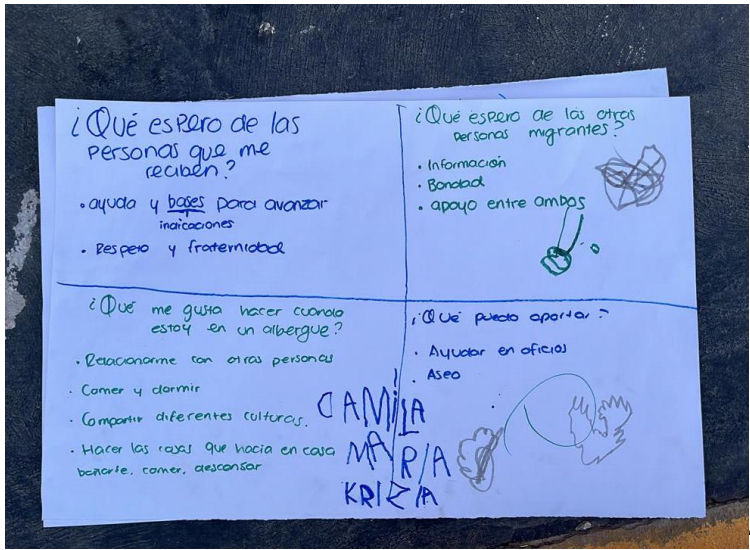 ¿Qué espero de las
personas que me
reciben?
• ayuda y bases para avanzar
indicaciones
• Respeto y fraternidad
¿Qué espero de las otras
personas migrantes?
• Información
• Bondad
• apoyo entre ambos
¿Qué me gusta hacer cuando
estoy en un albergue?
• Relacionarme con otras personas
• Comer y dormir
• Compartir diferentes culturas.
• Hacer las cosas que hacia en casa
bañarte, comer, descansar
¿Qué puedo aportar?
• Ayudar en oficios
• Aseo
•
CAMILA
MARIA
KRIZIA